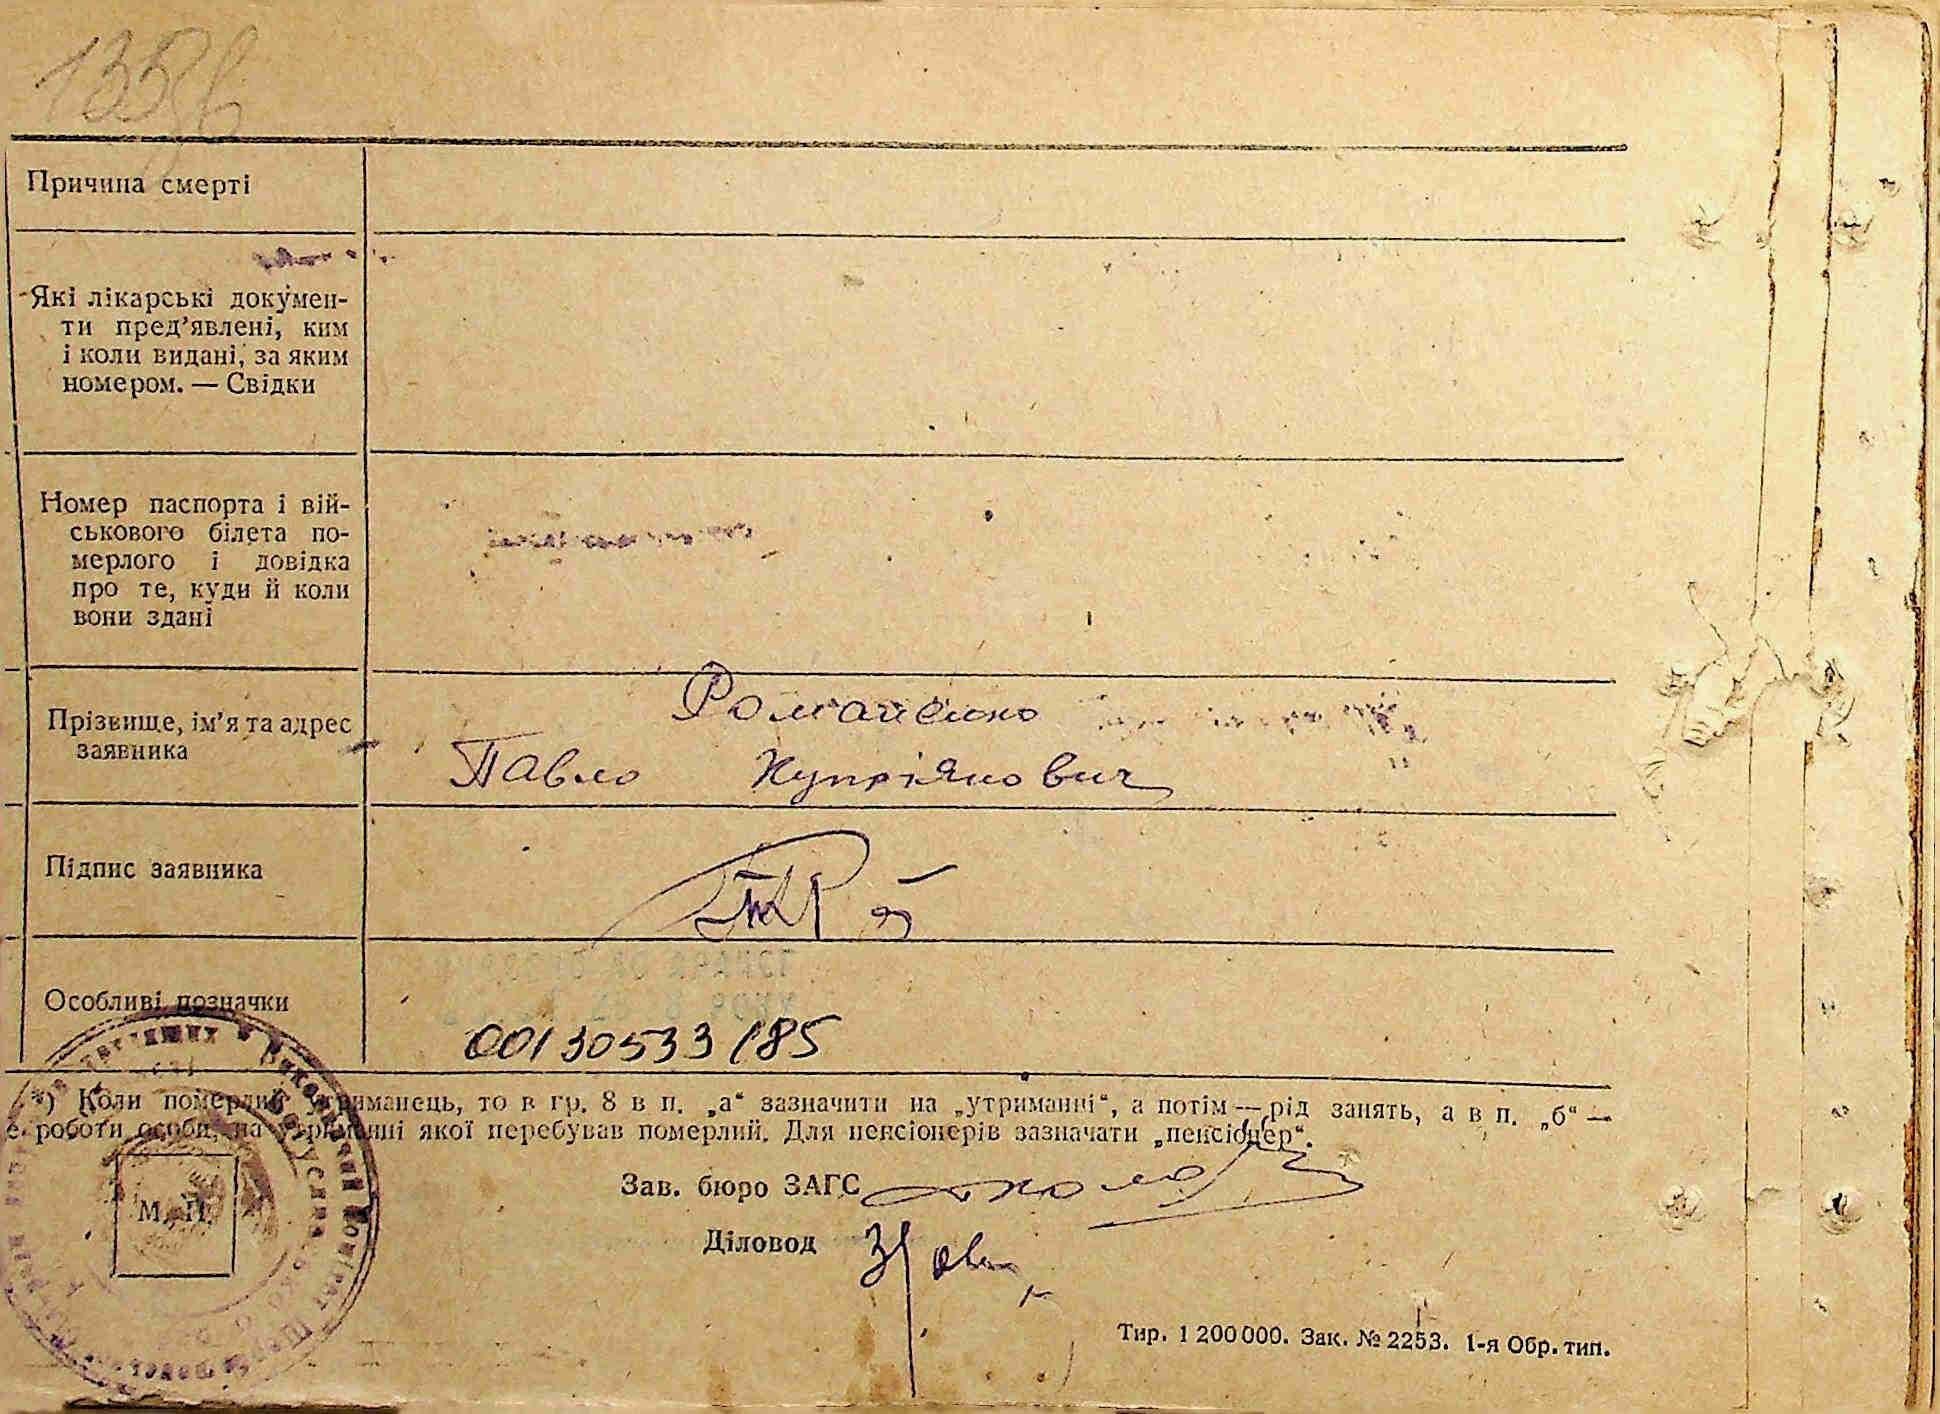 Причина смерті
Які лікарські докумен-
ти пред'явлені, ким
і коли видані, за яким
номером. — Свідки
Номер паспорта і вій-
ськового білета по-
мерлого і довідка
про те, куди й коли
вони здані
Прізвище, ім'я та адрес
заявника
Романенко
Павло Купріянович
Підпис заявника
Особливі позначки
00130533/85
*) Коли померлий утриманець, то в гр. 8 в п. „а“ зазначити на „утриманні“, а потім — рід занять, а в п. „б“ —
е роботи особи, на утриманні якої перебував померлий. Для пенсіонерів зазначати „пенсіонер“.
М. П.
Зав. бюро ЗАГС
Діловод
Тир. 1 200 000. Зак. № 2253. 1-я Обр. тип.